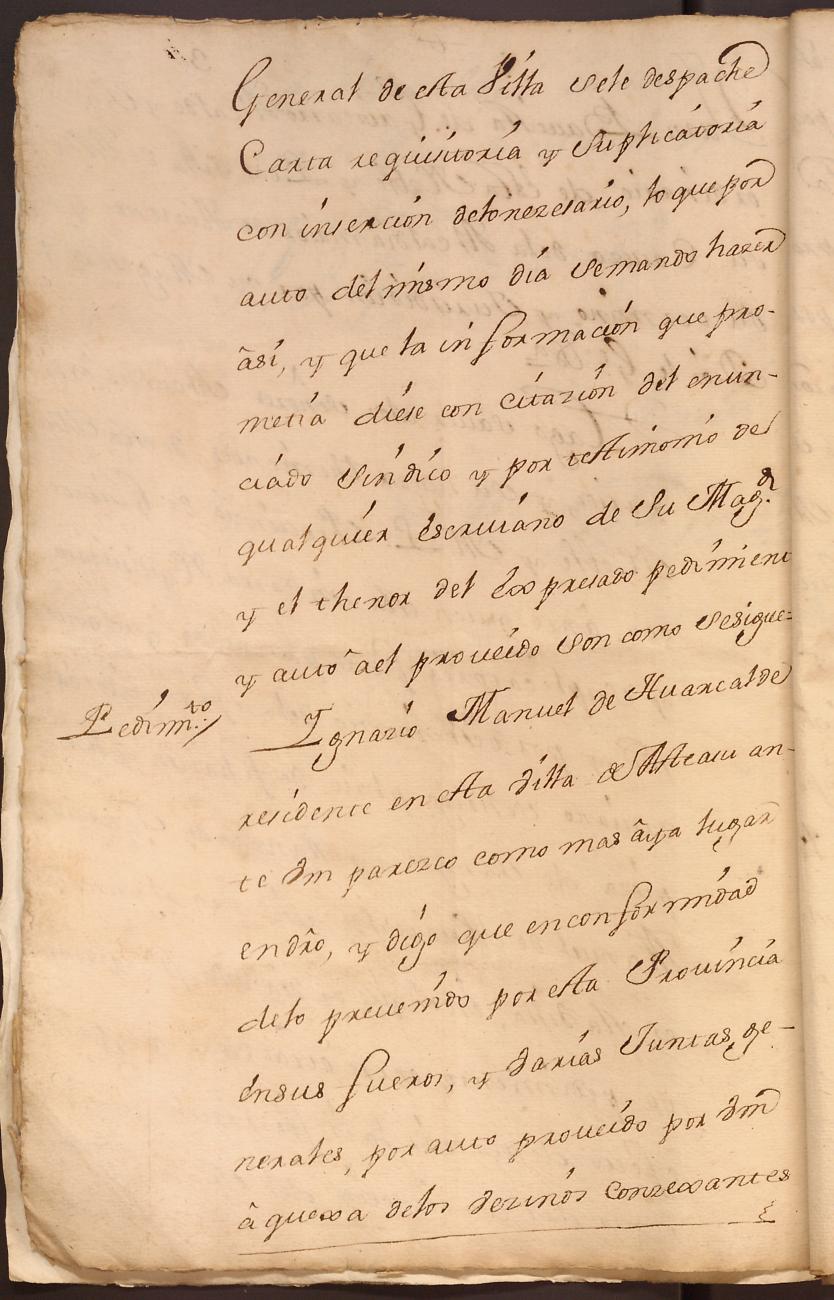 General de esta Villa sele despache
Carta requisitoria y suplicatoria
con inserzion delonezesario, lo que por
auto del mismo dia semando hazer
âsi, y que la informazion que pro-
metia diese con citazion del enun-
ciado sindico y por testimonio de
qualquier escriuano de Su Mag.d
y el thenor del expresado pedimient
y auto âel proueido son como sesigue=
Pedim.to / Ignazio Manuel de Huarcalde
residente en esta Villa de Asteasu an-
te Vm parezco como mas âya lugar
en dro, y digo que enconformidad
delo preuenido por esta Provincia
ensus fueros, y varias Juntas ge-
nerales, por auto proueido por Vm
â quexa delos vezinos conzexantes